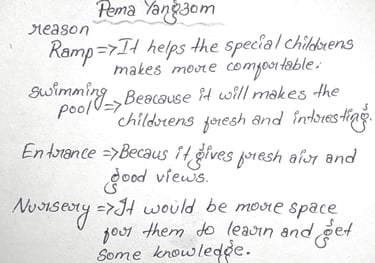 Pema Yangzom
reason
Ramp => It helps the special childrens
makes more comfortable.
Swimming
pool => Beacause it will makes the
childrens fresh and intresting.
Entrance => Becaus it gives fresh air and
good views.
Nursery => It would be more space
for them to learn and get
some knowledge.